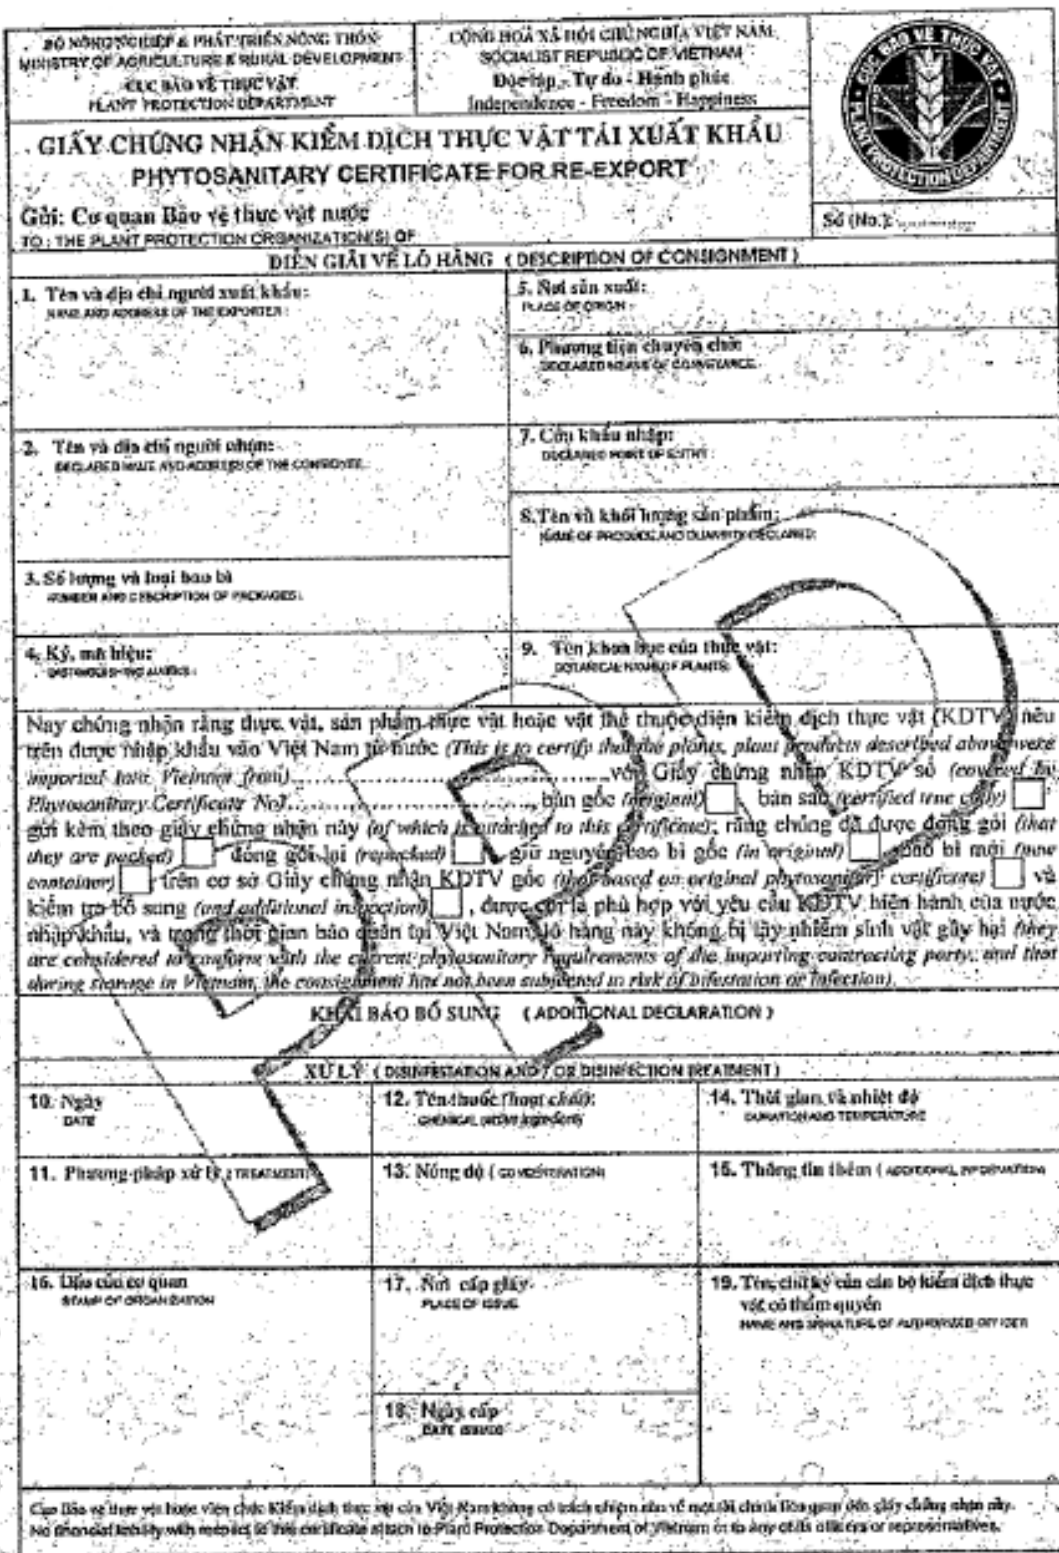 BỘ NÔNG NGHIỆP & PHÁT TRIỂN NÔNG THÔN
MINISTRY OF AGRICULTURE & RURAL DEVELOPMENT
CỤC BẢO VỆ THỰC VẬT
PLANT PROTECTION DEPARTMENT
CỘNG HOÀ XÃ HỘI CHỦ NGHĨA VIỆT NAM
SOCIALIST REPUBLIC OF VIETNAM
Độc lập - Tự do - Hạnh phúc
Independence - Freedom - Happiness
CỤC BẢO VỆ THỰC VẬT
PLANT PROTECTION DEPARTMENT
GIẤY CHỨNG NHẬN KIỂM DỊCH THỰC VẬT TÁI XUẤT KHẨU
PHYTOSANITARY CERTIFICATE FOR RE-EXPORT
Gửi: Cơ quan Bảo vệ thực vật nước
TO : THE PLANT PROTECTION ORGANIZATION(S) OF
Số (No.): ..............
DIỄN GIẢI VỀ LÔ HÀNG ( DESCRIPTION OF CONSIGNMENT )
1. Tên và địa chỉ người xuất khẩu:
NAME AND ADDRESS OF THE EXPORTER :
5. Nơi sản xuất:
PLACE OF ORIGIN :
6. Phương tiện chuyên chở:
DECLARED MEANS OF CONVEYANCE :
2. Tên và địa chỉ người nhận:
DECLARED NAME AND ADDRESS OF THE CONSIGNEE :
7. Cửa khẩu nhập:
DECLARED POINT OF ENTRY :
8. Tên và khối lượng sản phẩm:
NAME OF PRODUCE AND QUANTITY DECLARED:
3. Số lượng và loại bao bì
NUMBER AND DESCRIPTION OF PACKAGES :
4. Ký, mã hiệu:
DISTINGUISHING MARKS :
9. Tên khoa học của thực vật:
BOTANICAL NAME OF PLANTS:
Nay chứng nhận rằng thực vật, sản phẩm thực vật hoặc vật thể thuộc diện kiểm dịch thực vật (KDTV) nêu
trên được nhập khẩu vào Việt Nam từ nước (This is to certify that the plants, plant products described above were
imported into Vietnam from)................................................với Giấy chứng nhận KDTV số (covered by
Phytosanitary Certificate No)....................................., bản gốc (original) bản sao (certified true copy)
gửi kèm theo giấy chứng nhận này (of which is attached to this certificate); rằng chúng đã được đóng gói (that
they are packed) đóng gói lại (repacked) giữ nguyên bao bì gốc (in original) bao bì mới (new
container) trên cơ sở Giấy chứng nhận KDTV gốc (that based on original phytosanitary certificate) và
kiểm tra bổ sung (and additional inspection) , được coi là phù hợp với yêu cầu KDTV hiện hành của nước
nhập khẩu, và trong thời gian bảo quản tại Việt Nam, lô hàng này không bị lây nhiễm sinh vật gây hại (they
are considered to conform with the current phytosanitary requirements of the importing contracting party, and that
during storage in Vietnam, the consignment has not been subjected to risk of infestation or infection).
KHAI BÁO BỔ SUNG ( ADDITIONAL DECLARATION )
XỬ LÝ ( DISINFESTATION AND / OR DISINFECTION TREATMENT )
10. Ngày
DATE
12. Tên thuốc (hoạt chất):
CHEMICAL (active ingredient)
14. Thời gian và nhiệt độ
DURATION AND TEMPERATURE
11. Phương pháp xử lý ( TREATMENT)
13. Nồng độ ( CONCENTRATION)
15. Thông tin thêm ( ADDITIONAL INFORMATION)
16. Dấu của cơ quan
STAMP OF ORGANIZATION
17. Nơi cấp giấy
PLACE OF ISSUE
19. Tên, chữ ký của cán bộ kiểm dịch thực
vật có thẩm quyền
NAME AND SIGNATURE OF AUTHORIZED OFFICER
18. Ngày cấp
DATE ISSUED
Cục Bảo vệ thực vật hoặc viên chức Kiểm dịch thực vật của Việt Nam không có trách nhiệm nào về mặt tài chính liên quan đến giấy chứng nhận này.
No financial liability with respect to this certificate attach to Plant Protection Department of Vietnam or to any of its officers or representatives.